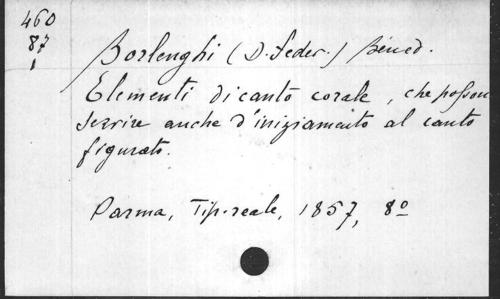 460
87
1
Borlenghi (D. Feder.) Bened.
Elementi di canto corale, che posson
servire anche d'iniziamento al canto
figurato.
Parma, Tip. reale, 1857, 8º